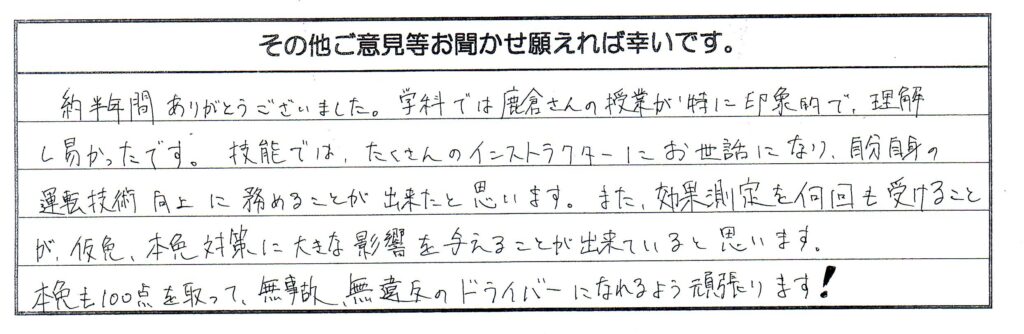 その他ご意見等お聞かせ願えれば幸いです。
約半年間ありがとうございました。学科では鹿倉さんの授業が特に印象的で、理解
し易かったです。技能では、たくさんのインストラクターにお世話になり、自分自身の
運転技術向上に務めることが出来たと思います。また、効果測定を何回も受けること
が、仮免、本免対策に大きな影響を与えることが出来ていると思います。
本免も100点を取って、無事故、無違反のドライバーになれるよう頑張ります！